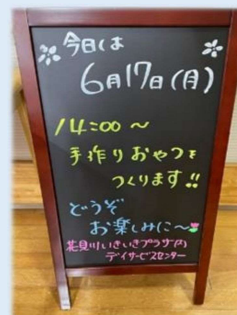 今日は
6月17日(月)
14:00〜
手作りおやつを
つくります!!
どうぞ
お楽しみに〜
花見川いきいきプラザ(内)
デイサービスセンター